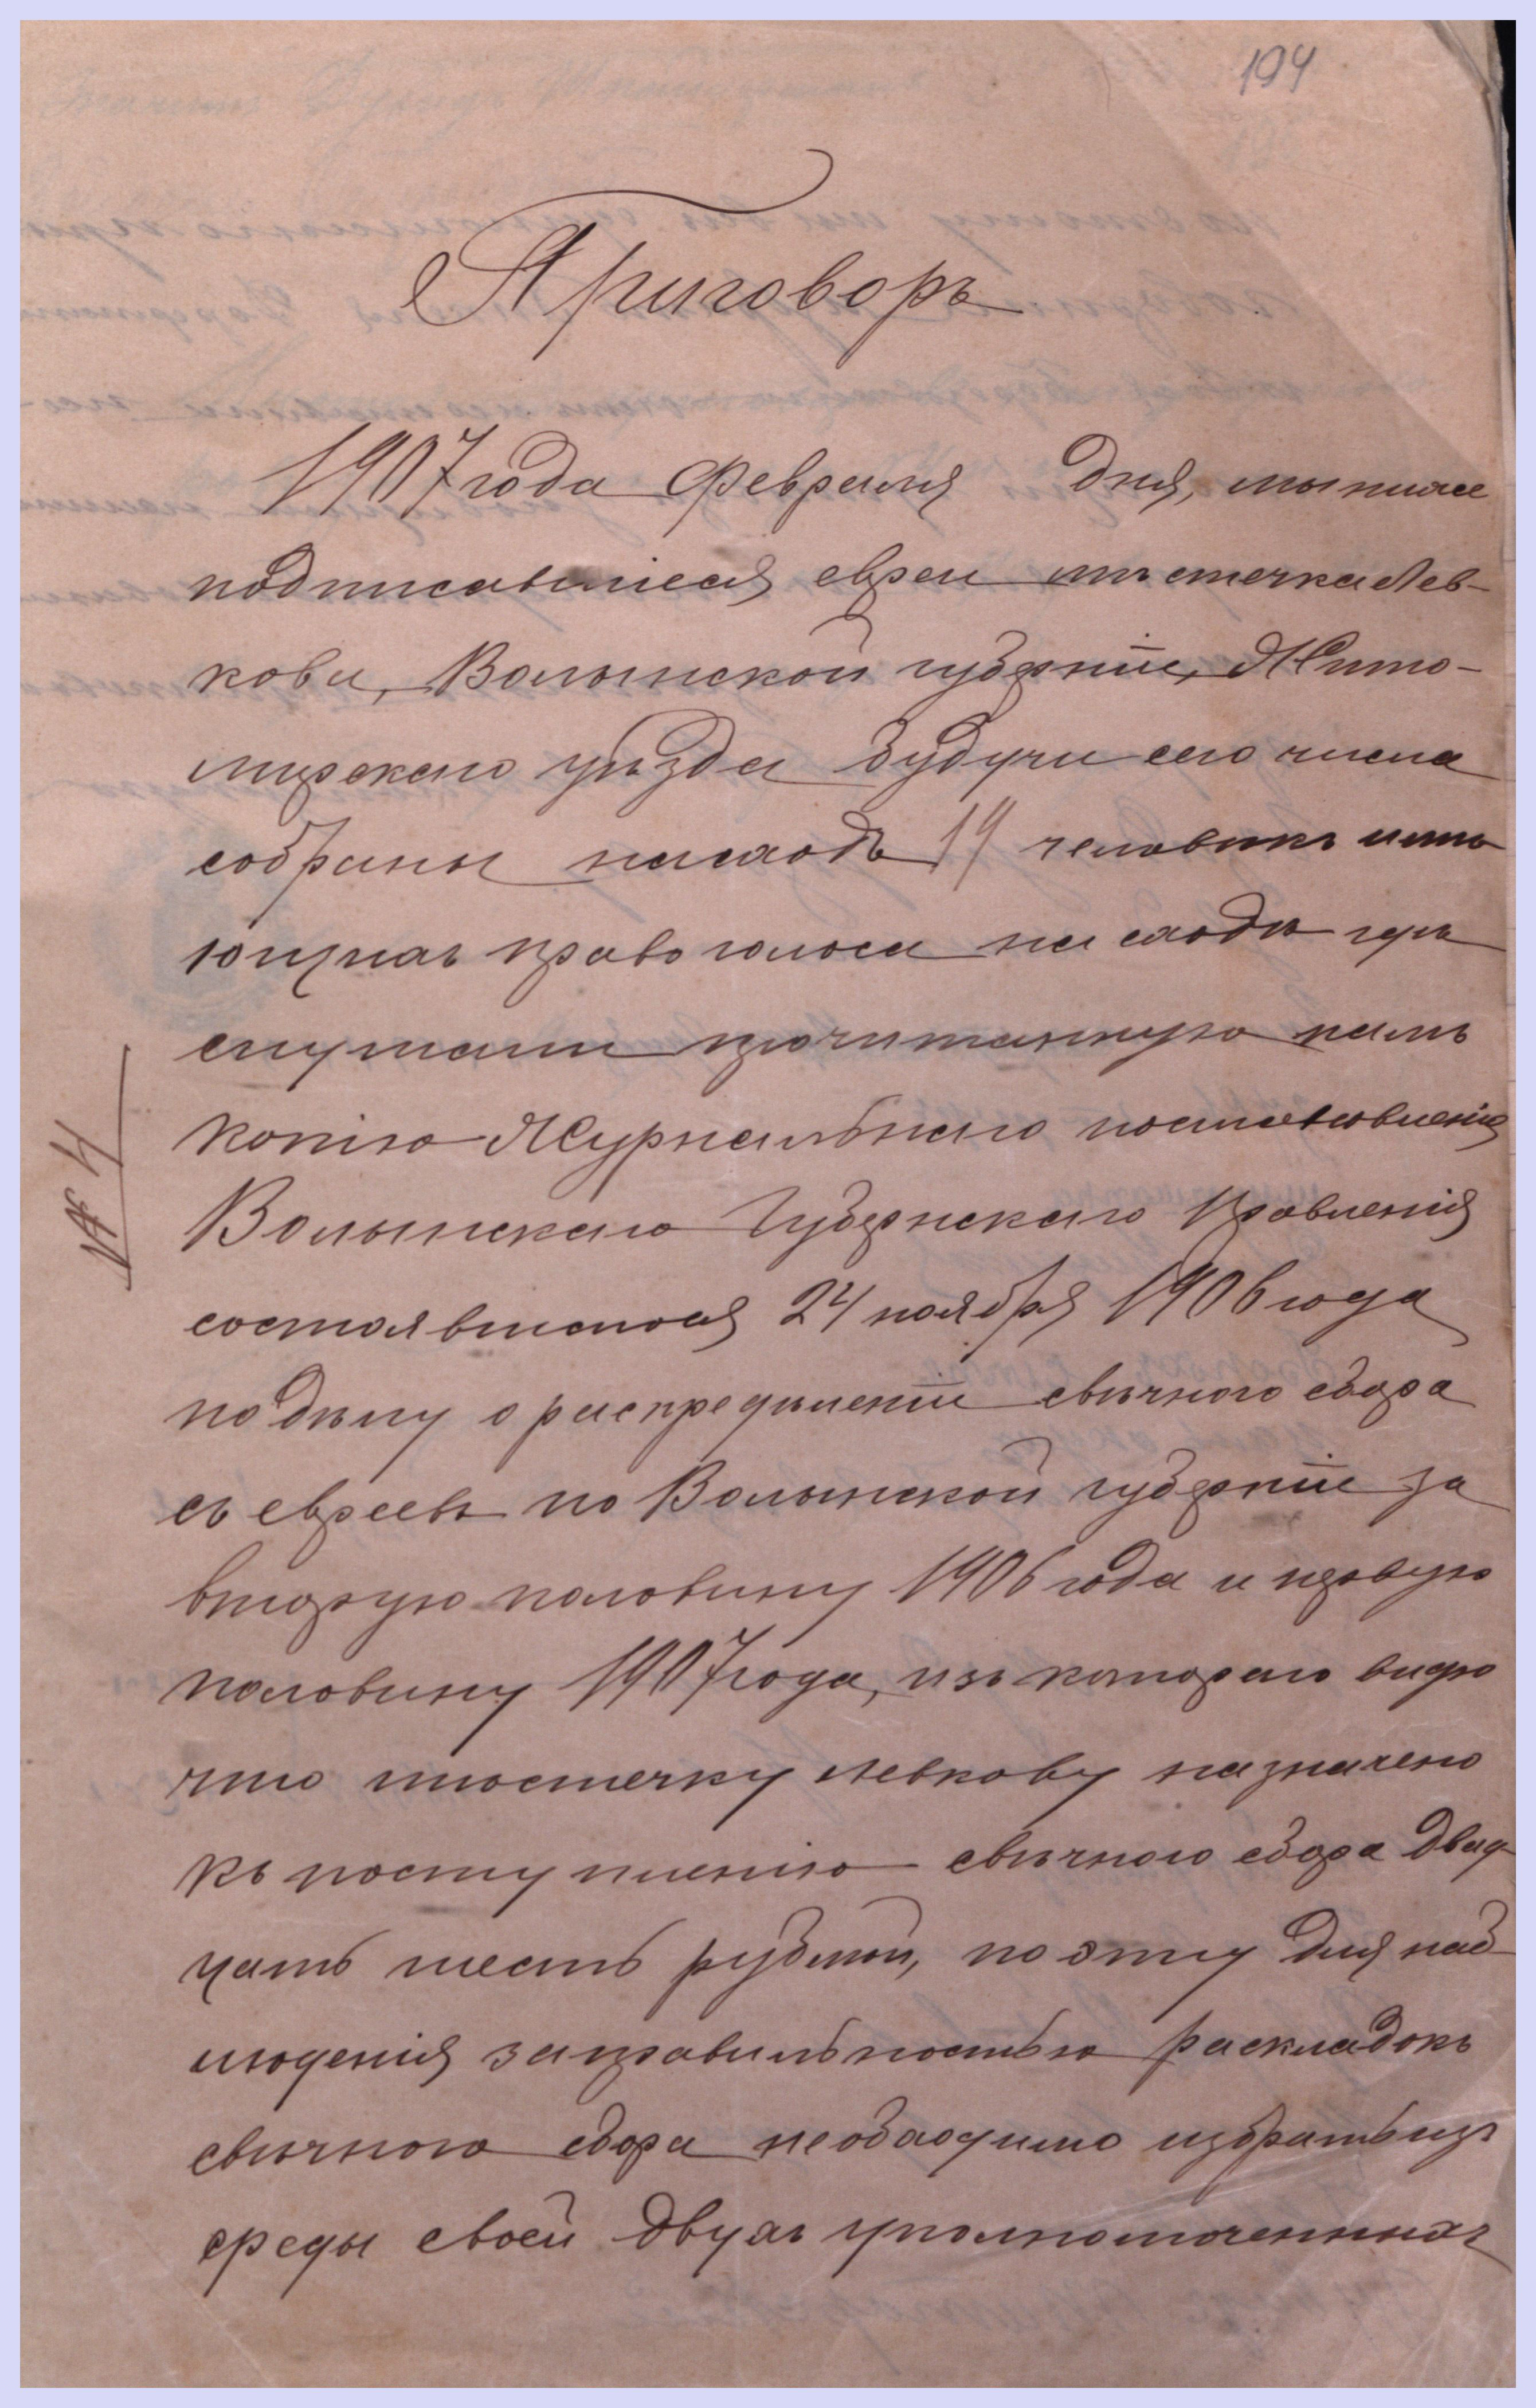 194
Приговоръ
1907 года Февраля дня, мы ниже
подписавшіеся евреи мѣстечка Лев-
кова, Волынской губерніи, Жито-
мирскаго уѣзда будучи сего числа
собраны на сходъ 14 человѣкъ имѣ
ющихъ право голоса на сходѣ гдѣ
слушали прочитанную намъ
копію Журнальнаго постановленія
Волынскаго Губернскаго Правленія
состоявшагося 24 ноября 1906 года
по дѣлу о распредѣленіи свѣчного сбора
съ евреевъ по Волынской губерніи за
вторую половину 1906 года и первую
половину 1907 года, изъ котораго видно
что мѣстечку Левкову назначено
къ поступленію свѣчного сбора двад-
цать шесть рублей, по этму для наб
люденія за правильностью раскладокъ
свѣчного сбора необходимо избрать изъ
среды своей двухъ уполномоченныхъ
№ 4